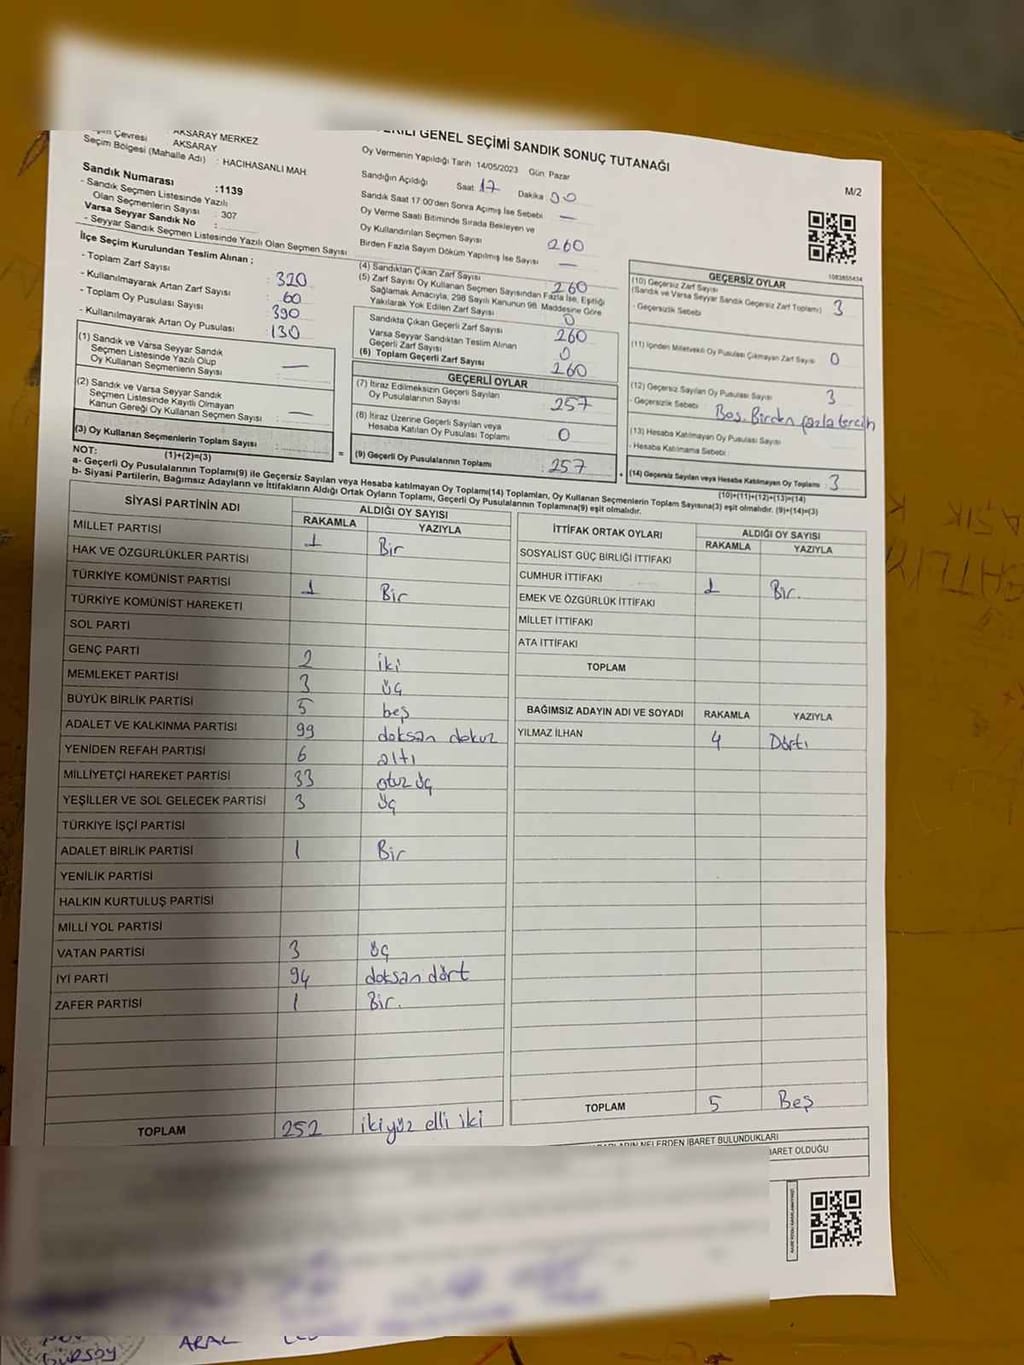 GENEL SEÇİMİ SANDIK SONUÇ TUTANAĞI
Çevresi AKSARAY MERKEZ
AKSARAY
Seçim Bölgesi (Mahalle Adı) : HACIHASANLI MAH
Sandık Numarası :1139
- Sandık Seçmen Listesinde Yazılı
Olan Seçmenlerin Sayısı : 307
Varsa Seyyar Sandık No :
- Seyyar Sandık Seçmen Listesinde Yazılı Olan Seçmen Sayısı
İlçe Seçim Kurulundan Teslim Alınan ;
- Toplam Zarf Sayısı 320
- Kullanılmayarak Artan Zarf Sayısı 60
- Toplam Oy Pusulası Sayısı 390
- Kullanılmayarak Artan Oy Pusulası 130
(1) Sandık ve Varsa Seyyar Sandık
Seçmen Listesinde Yazılı Olup
Oy Kullanan Seçmenlerin Sayısı : —
(2) Sandık ve Varsa Seyyar Sandık
Seçmen Listesinde Kayıtlı Olmayan
Kanun Gereği Oy Kullanan Seçmen Sayısı : —
(3) Oy Kullanan Seçmenlerin Toplam Sayısı :
(1)+(2)=(3)
Oy Vermenin Yapıldığı Tarih 14/05/2023 Gün Pazar
Sandığın Açıldığı Saat 17 Dakika 00
Sandık Saat 17.00'den Sonra Açımış İse Sebebi —
Oy Verme Saati Bitiminde Sırada Bekleyen ve
Oy Kullandırılan Seçmen Sayısı 260
Birden Fazla Sayım Döküm Yapılmış İse Sayısı —
(4) Sandıktan Çıkan Zarf Sayısı 260
(5) Zarf Sayısı Oy Kullanan Seçmen Sayısından Fazla İse, Eşitliği
Sağlamak Amacıyla, 298 Sayılı Kanunun 98. Maddesine Göre
Yakılarak Yok Edilen Zarf Sayısı 0
Sandıkta Çıkan Geçerli Zarf Sayısı 260
Varsa Seyyar Sandıktan Teslim Alınan
Geçerli Zarf Sayısı 0
(6) Toplam Geçerli Zarf Sayısı 260
GEÇERLİ OYLAR
(7) İtiraz Edilmeksizin Geçerli Sayılan
Oy Pusulalarının Sayısı 257
(8) İtiraz Üzerine Geçerli Sayılan veya
Hesaba Katılan Oy Pusulası Toplamı 0
= (9) Geçerli Oy Pusulalarının Toplamı : 257
M/2
1083855434
GEÇERSİZ OYLAR
(10) Geçersiz Zarf Sayısı
(Sandık ve Varsa Seyyar Sandık Geçersiz Zarf Toplamı) 3
- Geçersizlik Sebebi
(11) İçinden Milletvekili Oy Pusulası Çıkmayan Zarf Sayısı 0
(12) Geçersiz Sayılan Oy Pusulası Sayısı 3
- Geçersizlik Sebebi Boş. Birden fazla tercih
(13) Hesaba Katılmayan Oy Pusulası Sayısı
- Hesaba Katılmama Sebebi
+ (14) Geçersiz Sayılan veya Hesaba Katılmayan Oy Toplamı 3
(10)+(11)+(12)+(13)=(14)
NOT:
a- Geçerli Oy Pusulalarının Toplamı(9) ile Geçersiz Sayılan veya Hesaba katılmayan Oy Toplamı(14) Toplamları, Oy Kullanan Seçmenlerin Toplam Sayısına(3) eşit olmalıdır. (9)+(14)=(3)
b- Siyasi Partilerin, Bağımsız Adayların ve İttifakların Aldığı Ortak Oyların Toplamı, Geçerli Oy Pusulalarının Toplamına(9) eşit olmalıdır.
SİYASİ PARTİNİN ADI ALDIĞI OY SAYISI
RAKAMLA YAZIYLA
MİLLET PARTİSİ 1 Bir
HAK VE ÖZGÜRLÜKLER PARTİSİ
TÜRKİYE KOMÜNİST PARTİSİ 1 Bir
TÜRKİYE KOMÜNİST HAREKETİ
SOL PARTİ
GENÇ PARTİ 2 iki
MEMLEKET PARTİSİ 3 üç
BÜYÜK BİRLİK PARTİSİ 5 beş
ADALET VE KALKINMA PARTİSİ 99 doksan dokuz
YENİDEN REFAH PARTİSİ 6 altı
MİLLİYETÇİ HAREKET PARTİSİ 33 otuz üç
YEŞİLLER VE SOL GELECEK PARTİSİ 3 üç
TÜRKİYE İŞÇİ PARTİSİ
ADALET BİRLİK PARTİSİ 1 Bir
YENİLİK PARTİSİ
HALKIN KURTULUŞ PARTİSİ
MİLLİ YOL PARTİSİ
VATAN PARTİSİ 3 üç
İYİ PARTİ 94 doksan dört
ZAFER PARTİSİ 1 Bir.
TOPLAM 252 ikiyüz elli iki
İTTİFAK ORTAK OYLARI ALDIĞI OY SAYISI
RAKAMLA YAZIYLA
SOSYALİST GÜÇ BİRLİĞİ İTTİFAKI
CUMHUR İTTİFAKI 1 Bir.
EMEK VE ÖZGÜRLÜK İTTİFAKI
MİLLET İTTİFAKI
ATA İTTİFAKI
TOPLAM
BAĞIMSIZ ADAYIN ADI VE SOYADI RAKAMLA YAZIYLA
YILMAZ İLHAN 4 Dört
TOPLAM 5 Beş
NELERDEN İBARET BULUNDUKLARI
BARET OLDUĞU
ARAL
GÜRSOY